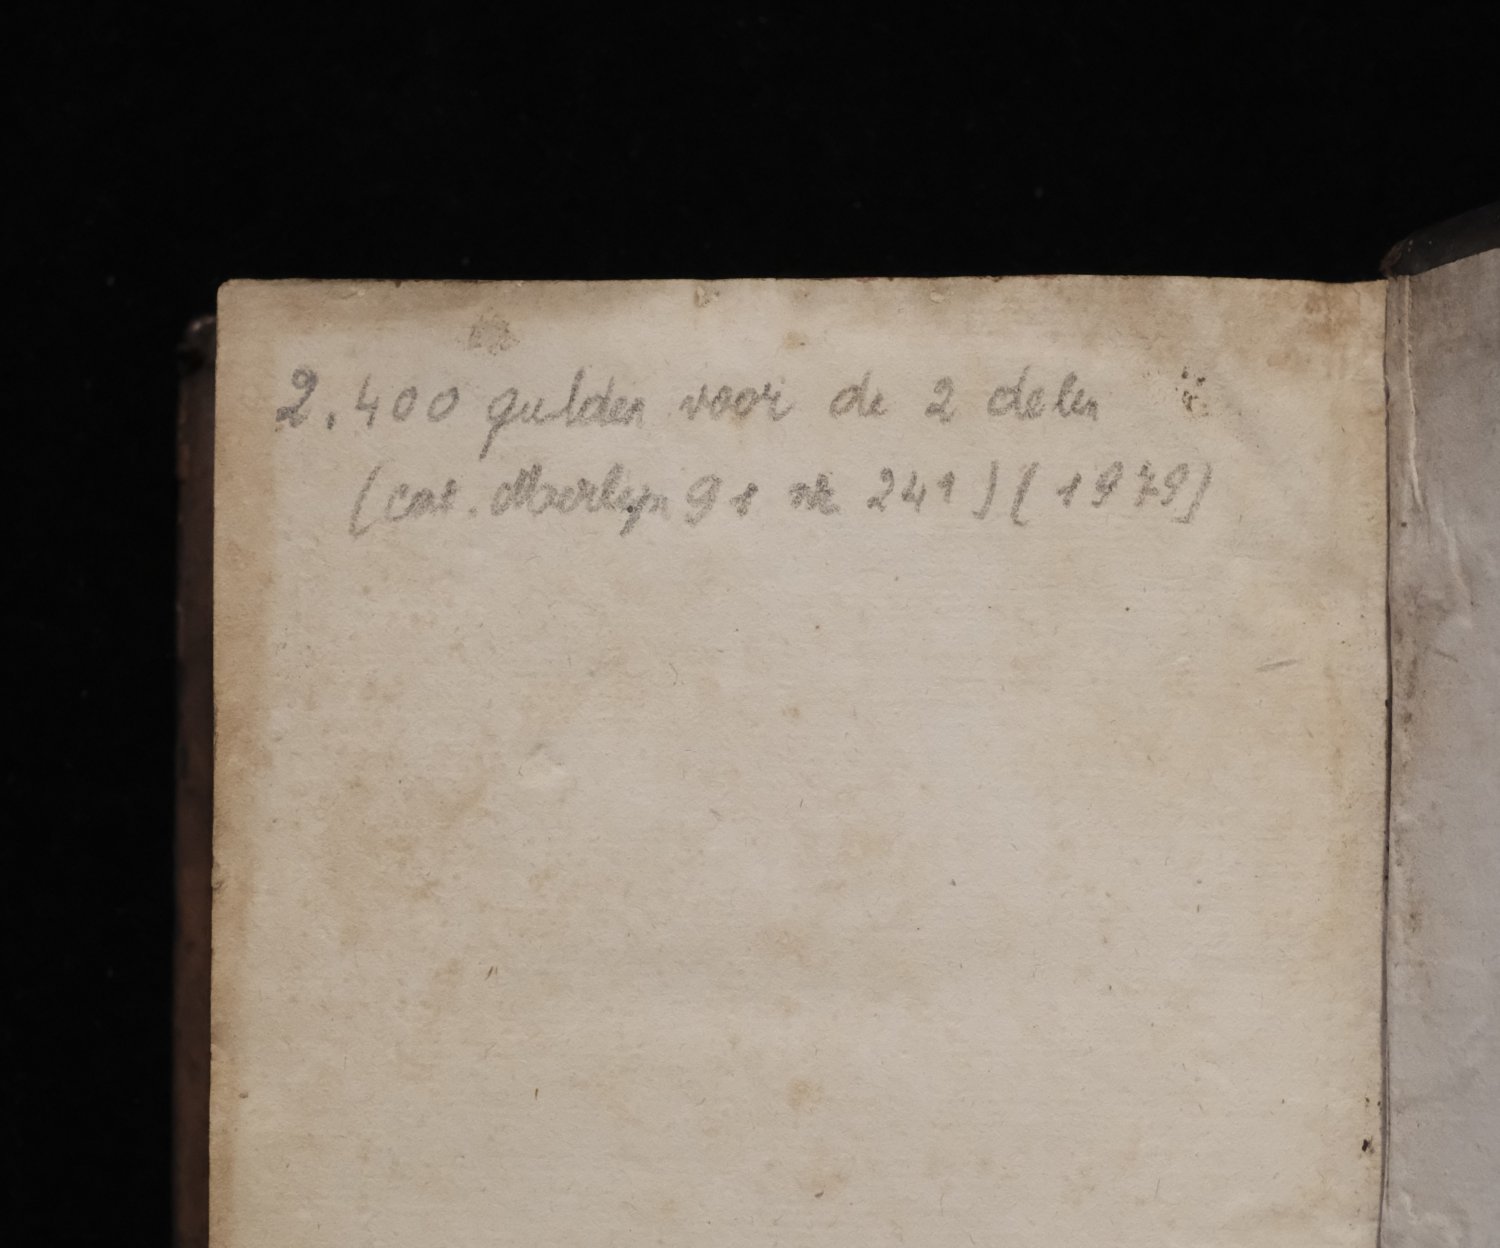 2.400 gulden voor de 2 delen
(cat. Merlyn 91 nr 241) (1979)